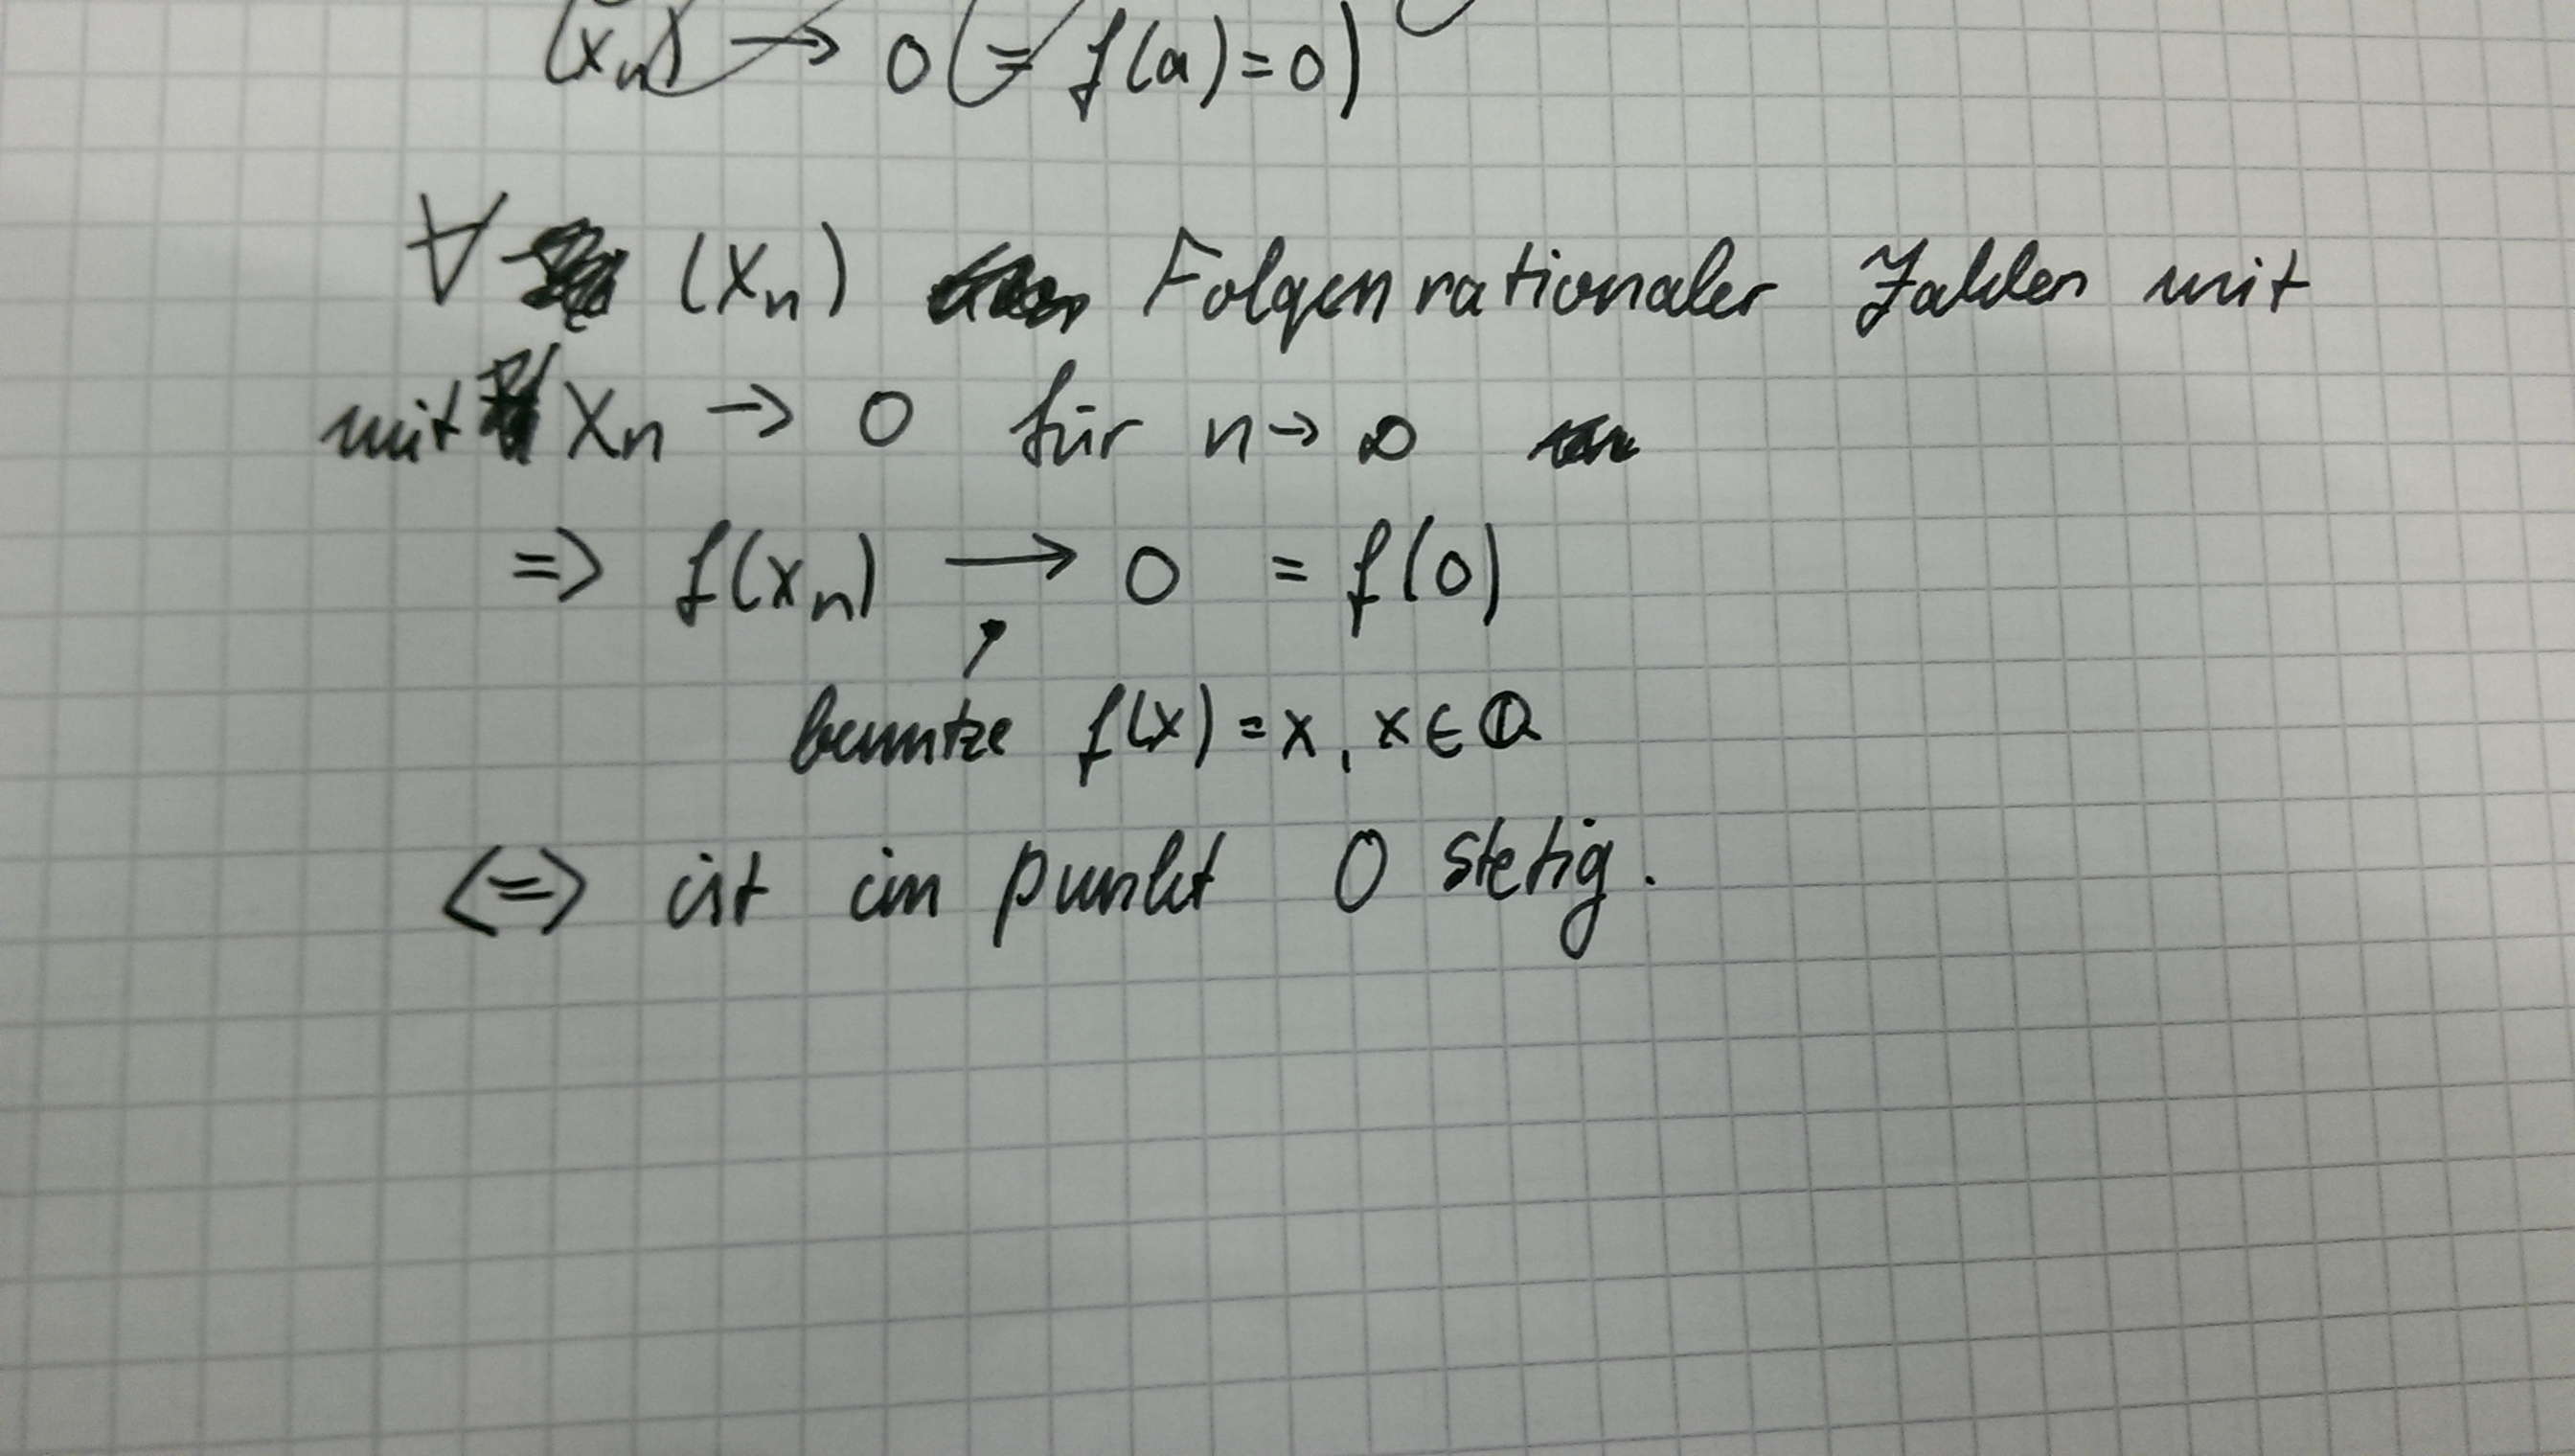 (xn) → 0 (= f(a) = 0)
∀ (xn) Folgen rationaler Zahlen mit
mit xn → 0 für n → ∞
=> f(xn) → 0 = f(0)
benutze f(x) = x, x ∈ ℚ
<=> ist im punkt 0 stetig.